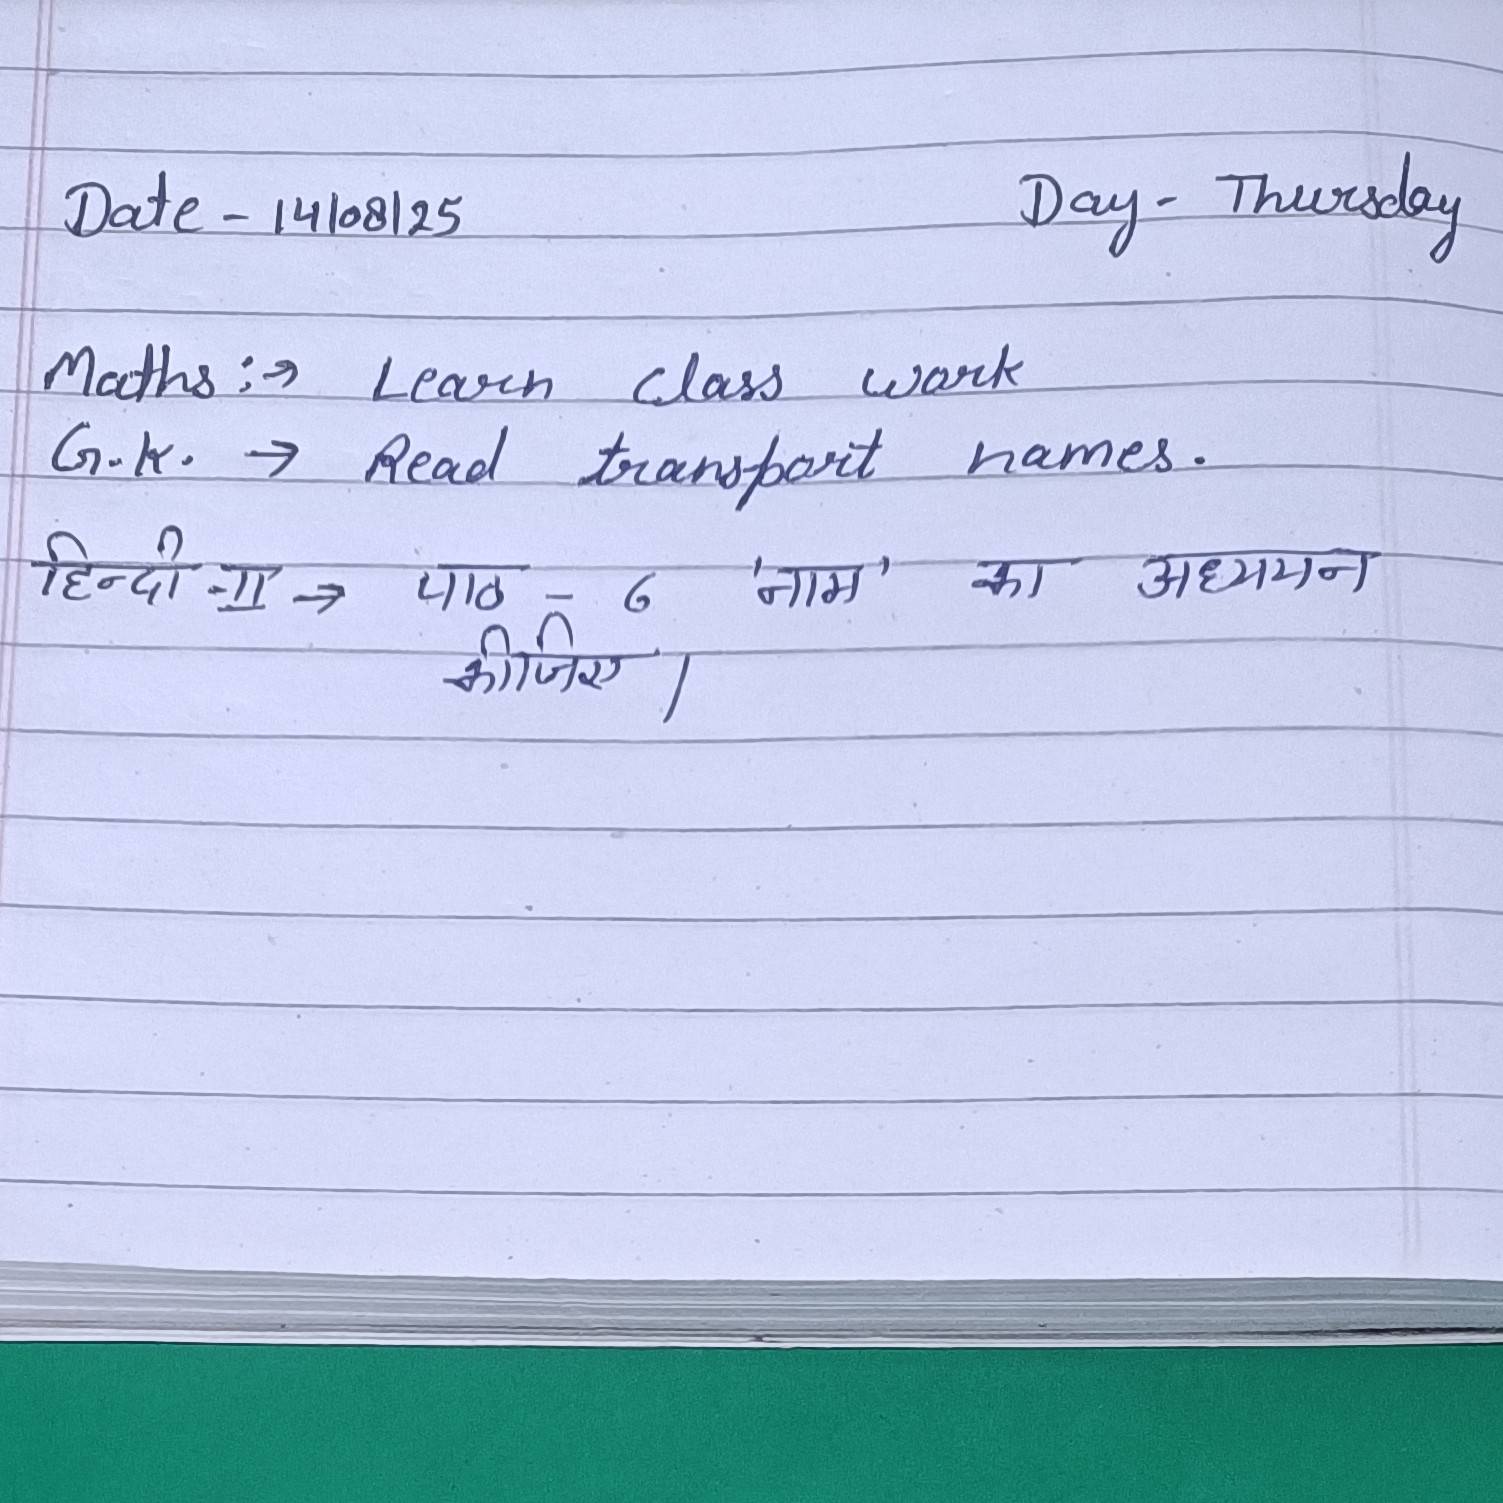 Date - 14/08/25 Day - Thursday
Maths :→ Learn class work
G.K. → Read transport names.
हिन्दी -II → पाठ - 6 'नाम' का अध्ययन
कीजिए।